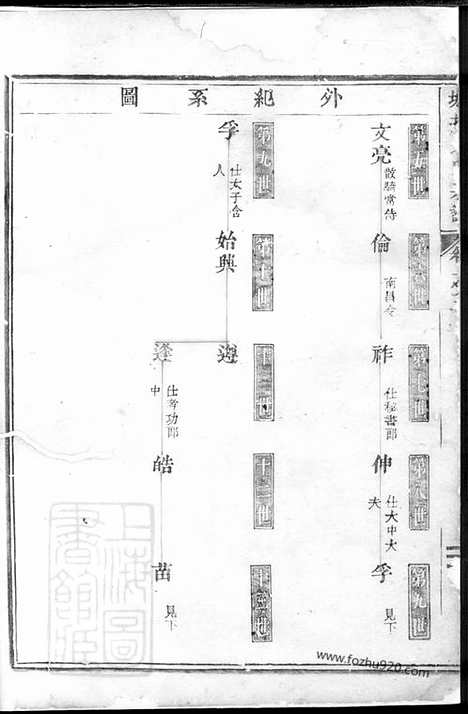 外紀系圖
第五世 第六世 第七世 第八世 第九世
文亮 散騎常侍 倫 南昌令 祚 仕秘書郎 伸 仕大中大夫 孚 見下
第九世 第十世 十一世 十二世 十三世
孚 仕太子舍人 始興
逢 仕考功郎中 皓 苗 見下
上海圖書館藏
www.fozhu920.com